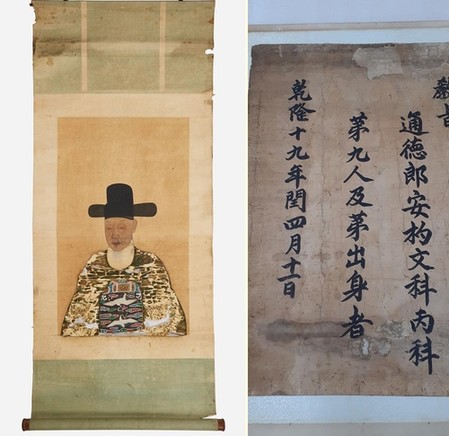 敎旨
通德郎安杓文科丙科
苐九人及苐出身者
乾隆十九年閏四月十一日